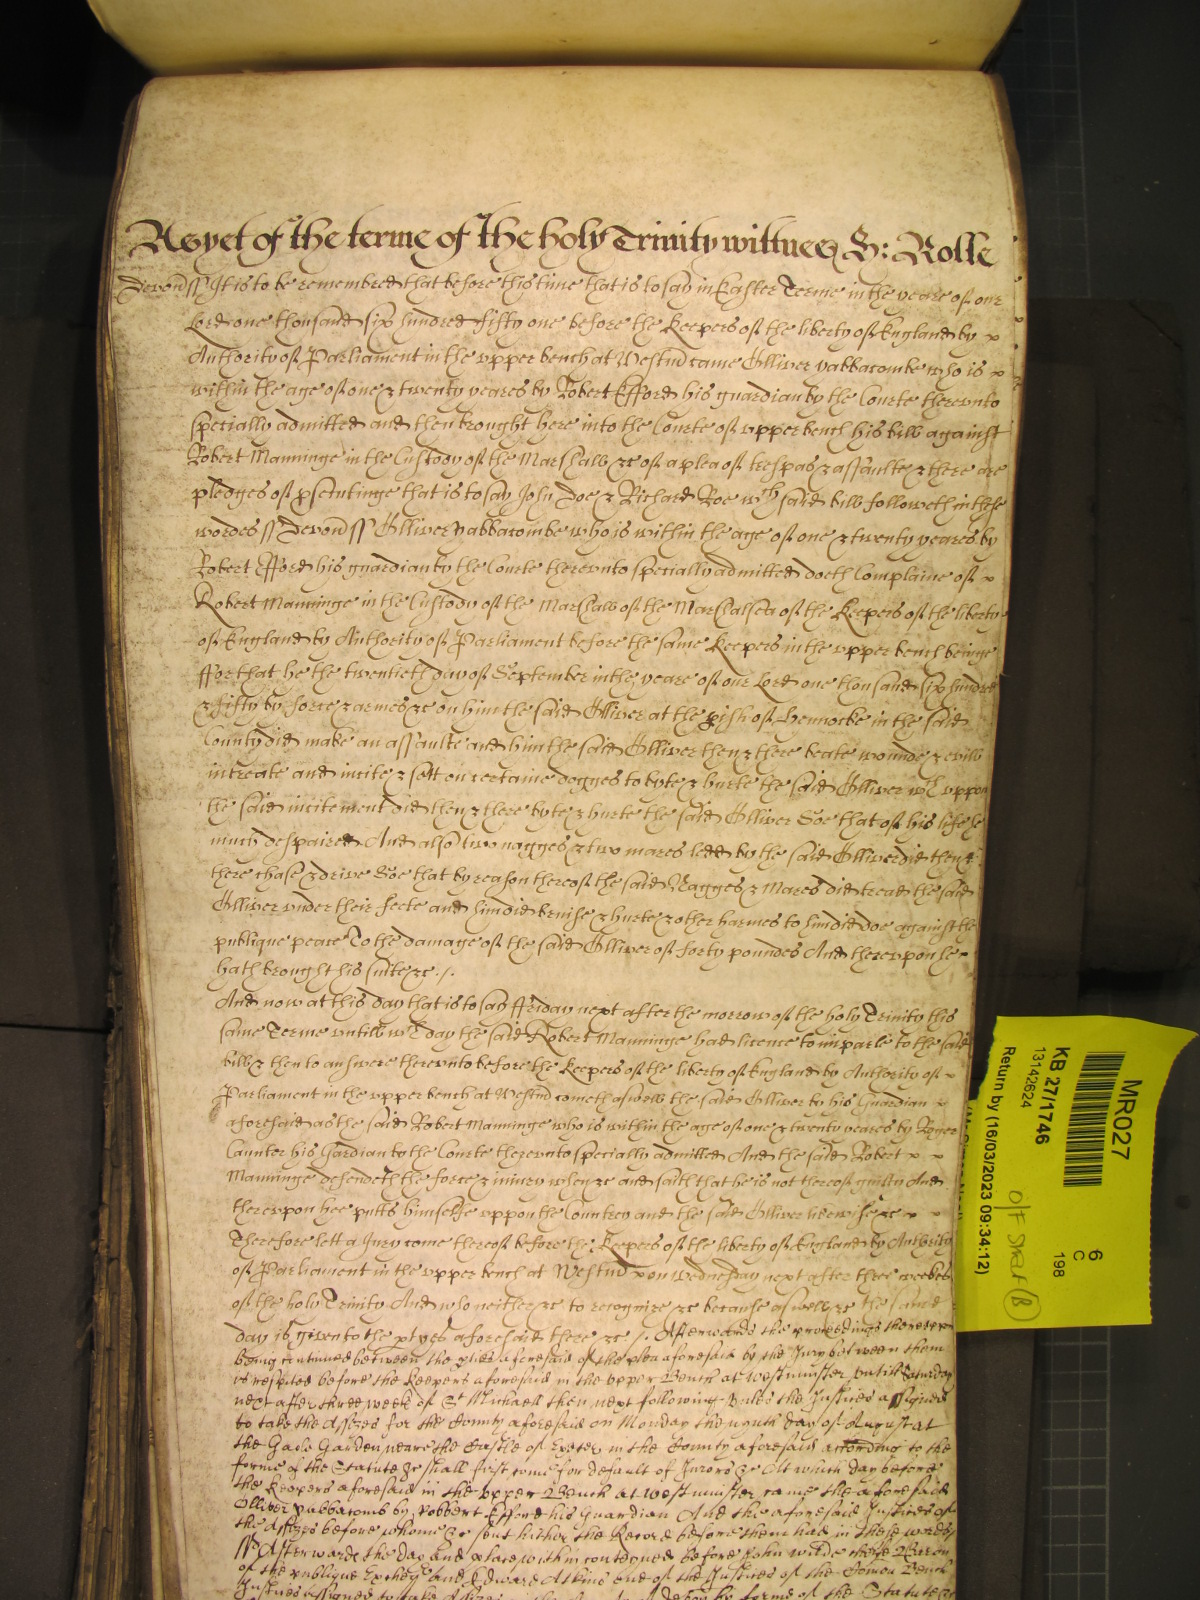 As yet of the terme of the holy Trinity wittnes H: Rolle
Devon ss It is to be remembred that before this time that is to say in Easter Terme in the yeare of our
Lord one thousand six hundred fifty one before the Keepers of the liberty of England by x
Authority of Parliament in the upper bench at Westm came Olliver Yabbacombe who is x
within the age of one & twenty yeares by Robert Efford his guardian by the Courte therevnto
specially admitted and then brought here into the Courte of vpper bench his bill against
Robert Manninge in the Custody of the Marshall &c of a plea of trespas & assaulte & there are
pledges of psecutinge that is to say John Doe & Richard Roe wch said bill followeth in these
wordes ss Devon ss Olliver Yabbacombe who is within the age of one & twenty yeares by
Robert Efford his guardian by the Courte therevnto specially admitted doeth Complaine of x
Robert Manninge in the Custody of the Marshall of the Marshalsea of the Keepers of the liberty
of England by Authority of Parliament before the same Keepers in the vpper bench beinge
ffor that he the twentieth day of September in the yeare of our Lord one thousand six hundred
& fifty by force & armes &c on him the said Olliver at the pish of Hennocke in the said
County did make an assaulte and him the said Olliver then & there beate wounde & evill
intreate and incite & sett on certaine dogges to byte & hurte the said Olliver wch vppon
the said incitement did then & there byte & hurte the said Olliver Soe that of his life he
much despaired And also two nagges & two mares ledd by the said Olliver did then &
there chase & drive Soe that by reason thereof the said Nagges & Mares did tread the said
Olliver vnder their feete and him did bruise & hurte & other harmes to him did doe against the
publique peace To the damage of the said Olliver of forty poundes And therevpon he
hath brought his suite &c ./.
And now at this day that is to say ffriday next after the morrow of the holy Trinity this
same Terme vntill wch day the said Robert Manninge had licence to imparle to the said
bill & then to answere therevnto before the Keepers of the liberty of England by Authority of x
Parliament in the vpper bench at Westm cometh aswell the said Olliver by his Guardian x
aforesaid as the said Robert Manninge who is within the age of one & twenty yeares by Roger
Caunter his Gardian to the Courte therevnto specially admitted And the said Robert x x
Manninge defendeth the force & iniury when &c and saith that he is not thereof guilty And
therevpon hee putts himselfe vppon the Countrey and the said Olliver likewise &c x x
Therefore lett a Jury come thereof before the Keepers of the liberty of England by Authority
of Parliament in the vpper bench at Westm x on wednesday next after three weekes
of the holy Trinity And who neither &c to recognize &c because aswell &c the same
day is given to the ptyes aforesaid there &c /. Afterwards the proceedings therevpon
being continued between the pties aforesaid of the plea aforesaid by the Jury between them
is respited before the Keepers aforesaid in the vpper Bench at Westminster vntill Saturday
next after three weeks of St Michaell then next following vnles the Justices assigned
to take the Assizes for the County aforesaid on Monday the day of August at
the Gaole Garden neare the Castle of Exeter in the County aforesaid according to the
forme of the Statute &c shall first come for default of Jurors &c Att which day before
the Keepers aforesaid in the vpper Bench at Westminster came the aforesaid
Olliver Yabbacomb by Robbert Efford his Guardian And the aforesaid Justices of
the Assizes before whome &c sent hither the Record before them had in these words
ss Afterwards the day and place within conteyned before John Wilde cheife Baron
of the publique Excheqr and Edward Atkins one of the Justices of the Comon Bench
Justices assigned to take Assizes in the County of Devon by forme of the Statute &c
MR027
KB 27/1746
13142624
Return by (16/03/2023 09:34:12)
6
C
198